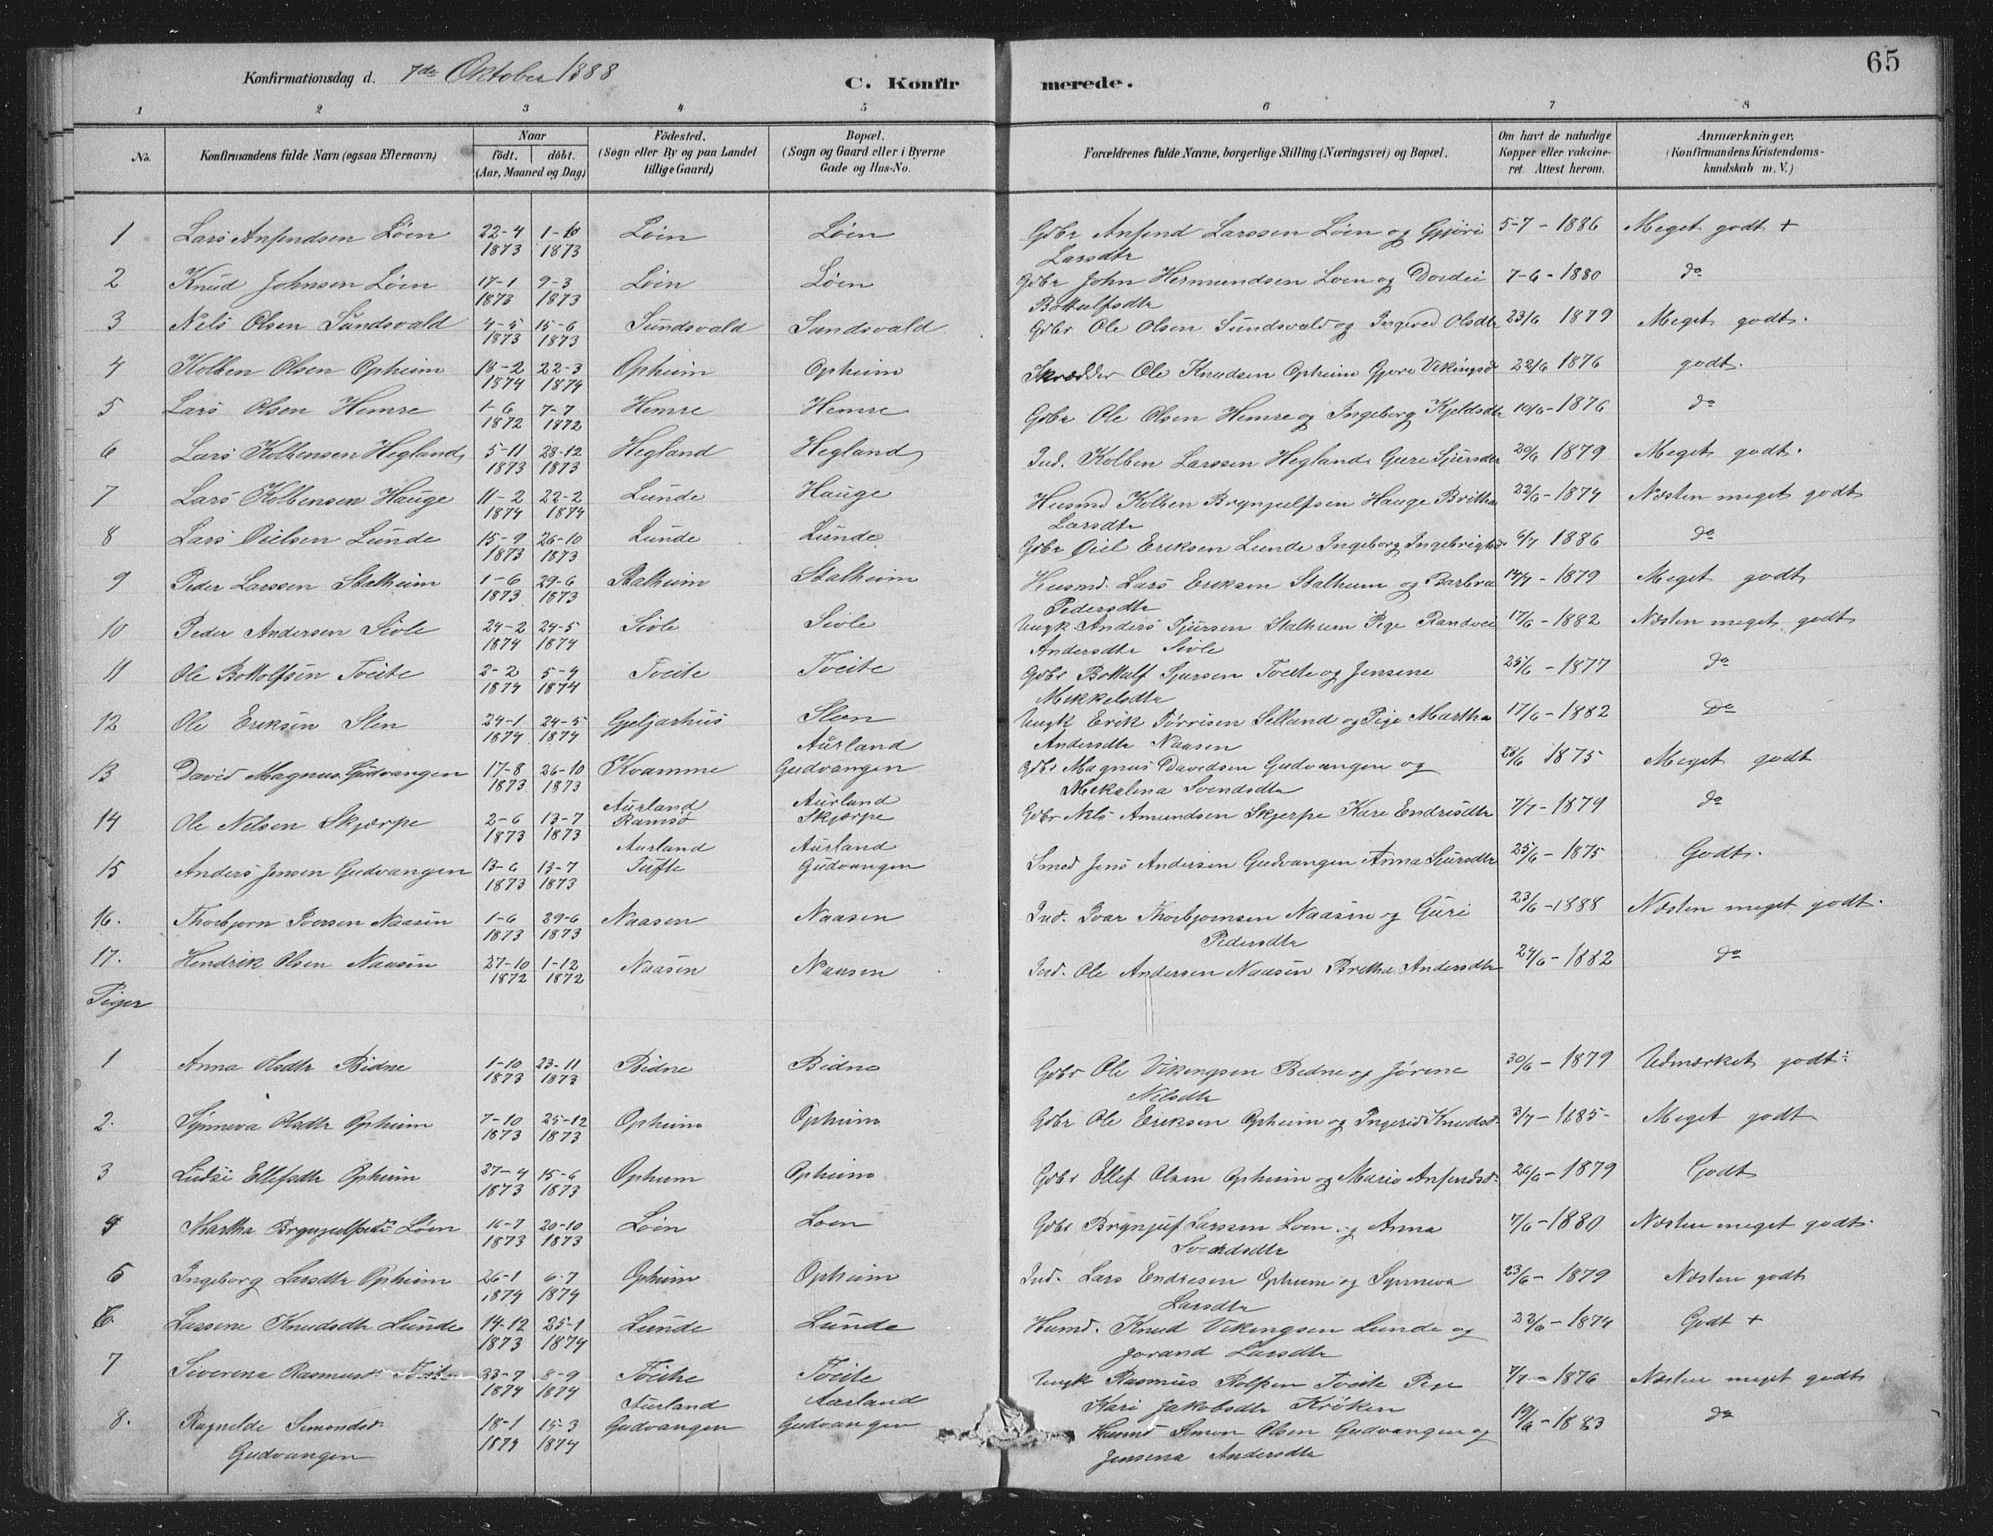 65
Konfirmationsdag d. 7de Oktober 1888 C. Konfirmerede.
1 2 3 4 5 6 7 8
No. Konfirmandens fulde Navn (ogsaa Efternavn) Naar födt. döbt. (Aar, Maaned og Dag) Födested. (Sogn eller By og paa Landet tillige Gaard) Bopæl. (Sogn og Gaard eller i Byerne Gade og Hus-No. Forældrenes fulde Navne, borgerlige Stilling (Næringsvei) og Bopæl. Om havt de naturlige Kopper eller vakcineret. Attest herom. Anmærkninger. (Konfirmandens Kristendomskundskab m. V.)
1 Lars Anfendsen Löen 22-4 1873 1-10 1873 Löin Löen Gdbr Anfend Larssen Löen og Gjöri Larsdtr 5-7-1886 Meget godt +
2 Knud Johnsen Löen 17-1 1873 9-3 1873 Löin Löen Gdbr John Hermundsen Loen og Dordei Bottulfsdtr 7-6-1880 do
3 Nels Olsen Sundsvald 4-5 1873 15-6 1873 Sundsvald Sundsvald Gdbr Ole Olsen Sundsvald og Ingered Olsdtr 23/6 1879 Meget godt.
4 Kolben Olsen Opheim 18-2 1874 22-3 1874 Opheim Opheim Skrædder Ole Knudsen Opheim Gjore Vikingsd 22/6 1876 godt.
5 Lars Olsen Hemre 1-6 1872 7-7 1872 Hemre Hemre Gdbr Ole Olsen Hemre og Ingeborg Kjeldsdtr 10/6-1876 do
6 Lars Kolbensen Hegland 5-11 1873 28-12 1873 Hegland Hegland Ind. Kolben Larssen Hegland Gure Sjursdtr 20/6 1879 Meget godt.
7 Lars Kolbensen Hauge 11-2 1874 22-2 1874 Lunde Hauge Husmd Kolben Brynjulfsen Hauge Britha Larsdtr 22/6-1874 Næsten meget godt
8 Lars Oielsen Lunde 15-9 1873 26-10 1873 Lunde Lunde Gdbr Oiel Eriksen Lunde Ingeborg Ingebrigtsd 6/7 1886 do
9 Peder Larssen Stalheim 1-6 1873 29-6 1873 Stalheim Stalheim Husmd. Lars Eriksen Stalheim og Barbra Pedersdtr 14/7-1879 Meget godt
10 Peder Andersen Sivle 24-2 1874 24-5 1874 Sivle Sivle Ungk Anders Sjursen Stalheim Pige Randvei Andersdtr Sivle 17/6-1882 Næsten meget godt
11 Ole Bottolfsen Tveite 2-2 1874 5-4 1874 Tveite Tveite Gdbr Bottulf Sjursen Tveite og Jensene Mikkelsdtr 25/6-1877 do
12 Ole Eriksen Slen 24-1 1874 24-5 1874 Gjeljarhus Slæn Ungk Erik Törrisen Selland og Pige Martha Andersdtr Naasen 17/6-1882 do
13 David Magnus Gudvangen 17-8 1873 26-10 1873 Kvamme Aurland Gudvangen Gdbr Magnus Davedsen Gudvangen og Mekalena Svendsdtr 23/6 1875 Meget godt
14 Ole Nelsen Skjærpe 2-6 1873 13-7 1873 Aurland Ramsö Aurland Skjærpe Gdbr Nils Amundsen Skjerpe Kare Endresdtr 7/7-1879 do
15 Anders Jensen Gudvangen 13-6 1873 13-7 1873 Aurland Tufte Aurland Gudvangen Smed Jens Andersen Gudvangen Anna Siursdtr 25/6-1875 Godt.
16. Thorbjørn Iversen Naasen 1-6 1873 29-6 1873 Naasen Naasen Ind. Ivar Thorbjornsen Naasen og Guri Pedersdtr 23/6-1888 Næsten meget godt.
17. Hendrik Olsen Naasen 27-10 1872 1-12 1872 Naasen Naasen Ind. Ole Andersen Naasen Britha Andersdtr 24/6-1882 do
Piger
1 Anna Olsdtr Bidne 1-10 1873 23-11 1873 Bidne Bidne Gdbr Ole Vikingsen Bidne og Jörene Nelsdtr 30/6-1879 Udmærket godt
2. Synneva Olsdtr Opheim 7-10 1873 25-12 1873 Opheim Opheim Gdbr Ole Eriksen Opheim og Ingerid Knudsd. 3/7-1885- Meget godt
3 Ludsi Ellefsdtr Opheim 27-4 1873 15-6 1873 Opheim Opheim Gdbr Ellef Olsen Opheim og Mario Anfendsd. 26/6-1879 Godt
4 Martha Brynjulfsd. Löen 16-7 1873 20-10 1873 Löin Loen Gdbr Brynjuf Larssen Loen og Anna Svendsdtr 7/6-1880 Næsten meget godt.
5 Ingeborg Larsdtr Opheim 26-1 1874 6-7 1874 Opheim Opheim Ind. Lars Endresen Opheim og Synneva Larsdtr 23/6-1879 Næsten godt
6 Lassene Knudsdtr Lunde 14-12 1873 25-1 1874 Lunde Lunde Husmd. Knud Vikingsen Lunde og Jorand Larsdtr 22/6-1874 Godt +
7 Siverena Rasmusd. Tveite 23-7 1874 8-9 1874 Tveite Tveite Ungk Rasmus Rolfsen Tveite Pige Kari Jakobsdtr Kröken 7/7-1876 Næsten meget godt
8. Ragnilde Simonsd. Gudvangen 18-1 1874 15-3 1874 Aurland Gudvangen Aarland Gudvangen Husmd Simon Olsen Gudvangen og Jensena Andersdtr 19/6-1883 do